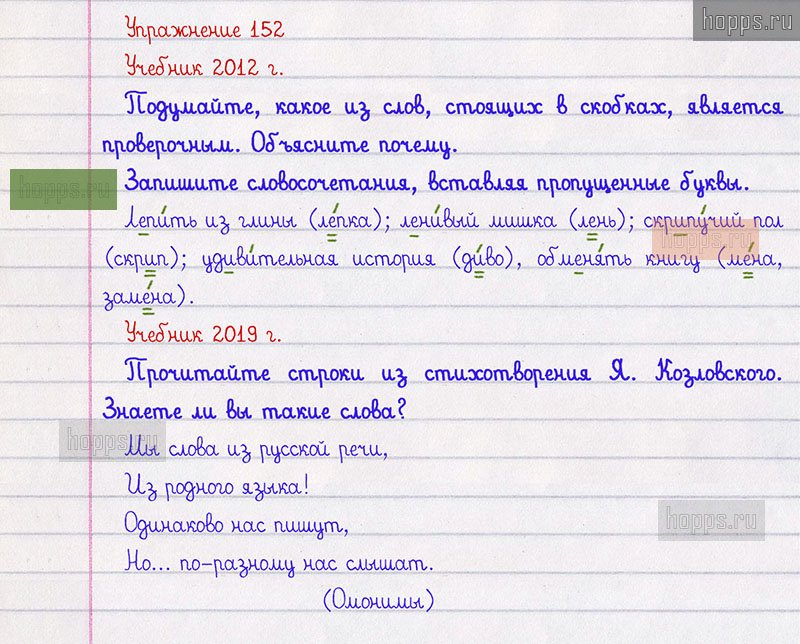 hopps.ru
Упражнение 152
Учебник 2012 г.
Подумайте, какое из слов, стоящих в скобках, является
проверочным. Объясните почему.
hopps.ru
Запишите словосочетания, вставляя пропущенные буквы.
Лепи́ть из глины (ле́пка); лени́вый мишка (лень); скрипу́чий пол
hopps.ru
(скрип); удиви́тельная история (ди́во), обменя́ть книгу (ме́на,
заме́на).
Учебник 2019 г.
Прочитайте строки из стихотворения Я. Козловского.
Знаете ли вы такие слова?
hopps.ru
Мы слова из русской речи,
Из родного языка!
hopps.ru
Одинаково нас пишут,
Но... по-разному нас слышат.
(Омонимы)